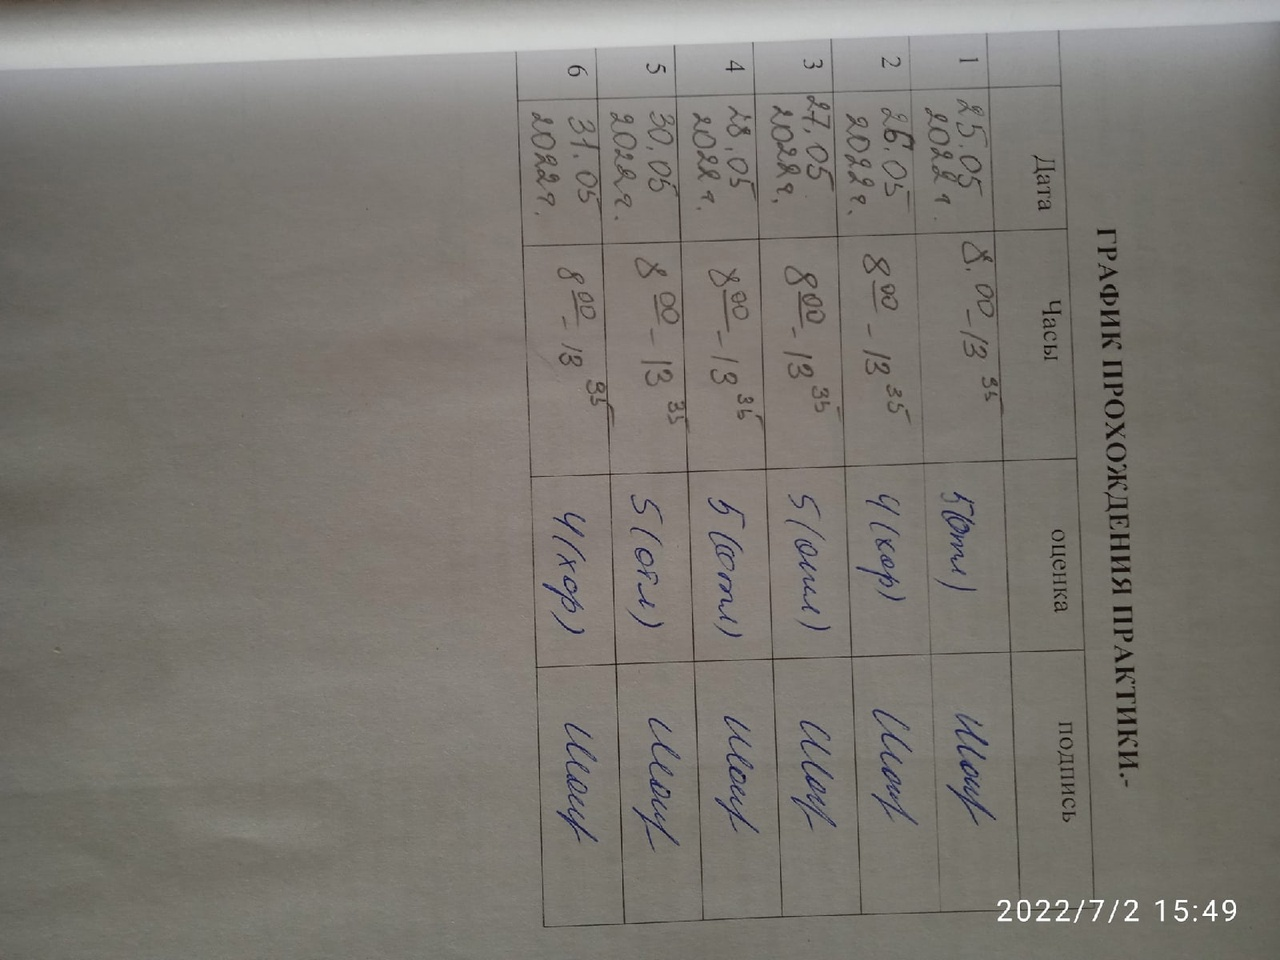 ГРАФИК ПРОХОЖДЕНИЯ ПРАКТИКИ.-
Дата Часы оценка подпись
1 25.05 2022г. 8.00-13 35 5(отл)
2 26.05 2022г. 8 00 - 13 35 4(хор)
3 27.05 2022г. 8 00 - 13 35 5(отл)
4 28.05 2022г. 8 00 - 13 35 5(отл)
5 30.05 2022г. 8 00 - 13 35 5(отл)
6 31.05 2022г. 8 00 - 13 35 4(хор)
2022/7/2 15:49